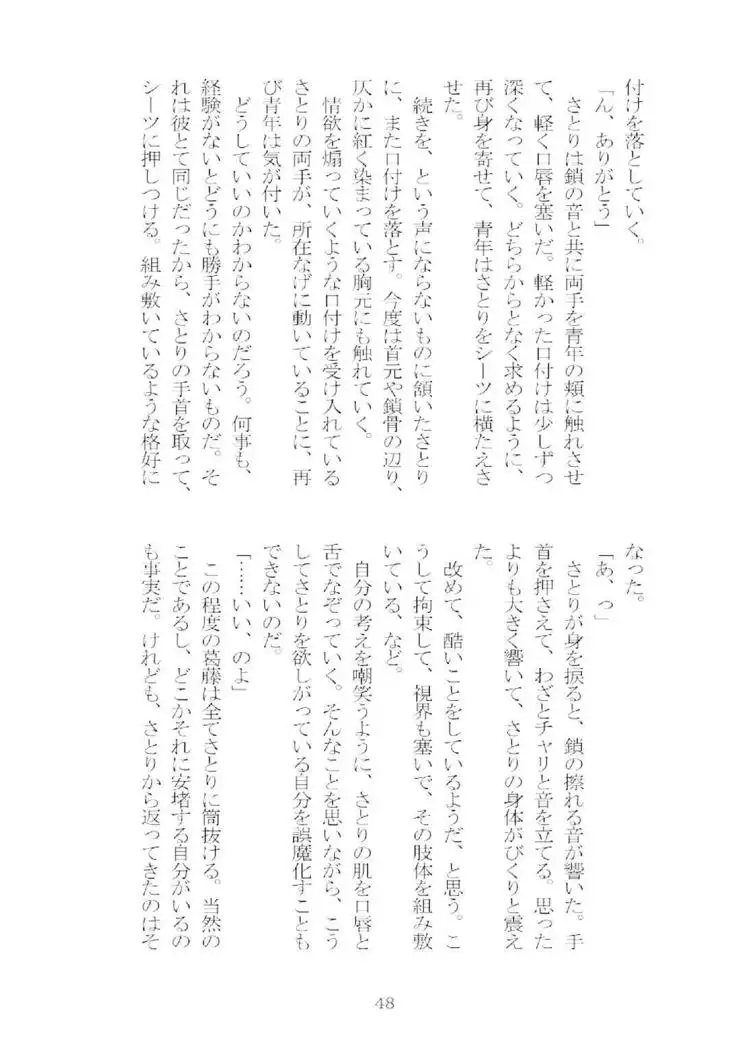 付けを落としていく。
「ん、ありがとう」
さとりは鎖の音と共に両手を青年の頬に触れさせ
て、軽く口唇を塞いだ。軽かった口付けは少しずつ
深くなっていく。どちらからとなく求めるように、
再び身を寄せて、青年はさとりをシーツに横たえさ
せた。
続きを、という声にならないものに頷いたさとり
に、また口付けを落とす。今度は首元や鎖骨の辺り、
仄かに紅く染まっている胸元にも触れていく。
情欲を煽っていくような口付けを受け入れている
さとりの両手が、所在なげに動いていることに、再
び青年は気が付いた。
どうしていいのかわからないのだろう。何事も、
経験がないとどうにも勝手がわからないものだ。そ
れは彼とて同じだったから、さとりの手首を取って、
シーツに押しつける。組み敷いているような格好に
なった。
「あ、っ」
さとりが身を捩ると、鎖の擦れる音が響いた。手
首を押さえて、わざとチャリと音を立てる。思った
よりも大きく響いて、さとりの身体がびくりと震え
た。
改めて、酷いことをしているようだ、と思う。こ
うして拘束して、視界も塞いで、その肢体を組み敷
いている、など。
自分の考えを嘲笑うように、さとりの肌を口唇と
舌でなぞっていく。そんなことを思いながら、こう
してさとりを欲しがっている自分を誤魔化すことも
できないのだ。
「……いい、のよ」
この程度の葛藤は全てさとりに筒抜ける。当然の
ことであるし、どこかそれに安堵する自分がいるの
も事実だ。けれども、さとりから返ってきたのはそ
48